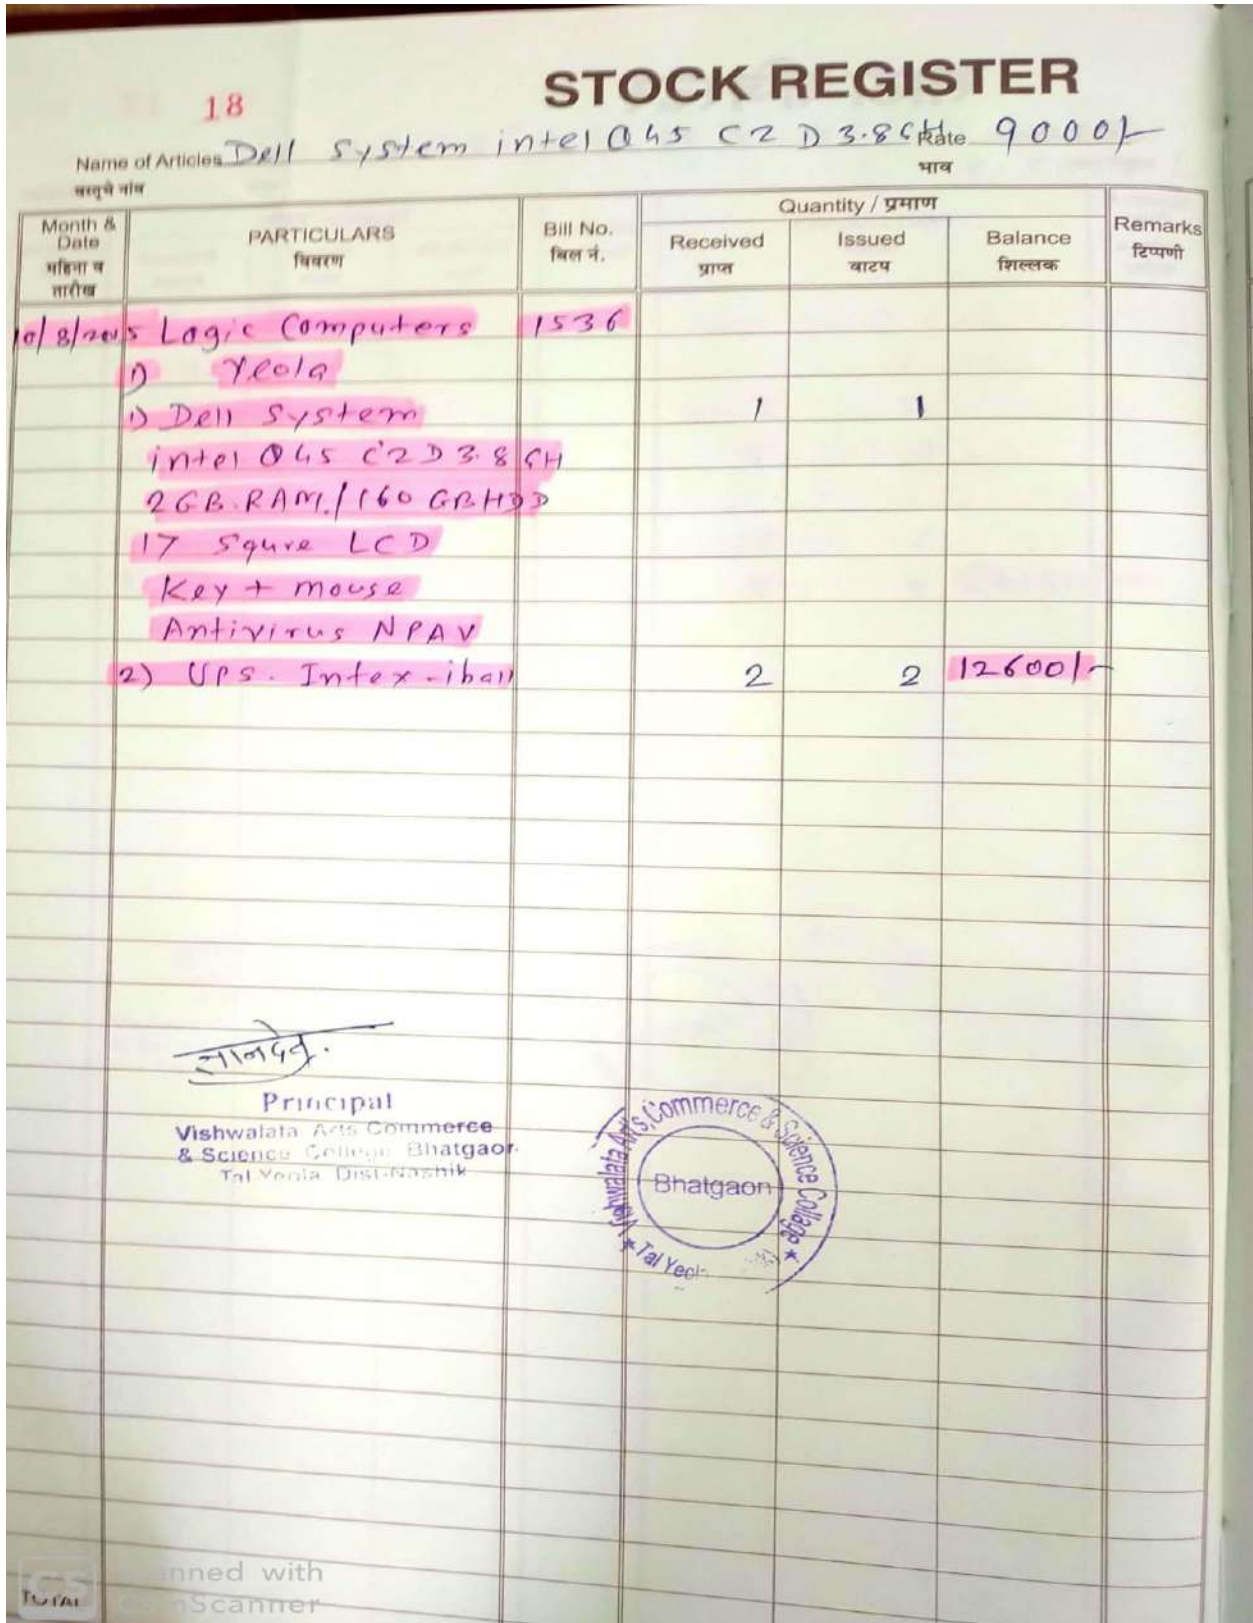 STOCK REGISTER
18
Name of Articles Dell system intel Q45 C2D 3.8GH Rate 9000/-
वस्तूचे नांव भाव
Month & Date PARTICULARS Bill No. Quantity / प्रमाण Remarks
महिना व तारीख विवरण बिल नं. Received Issued Balance टिप्पणी
प्राप्त वाटप शिल्लक
10/8/2015 Logic Computers 1536
1) Yeola
1) Dell System 1 1
intel Q45 C2D 3.8 GH
2GB.RAM./160 GBHDD
17 Squre LCD
Key + mouse
Antivirus NPAV
2) UPS. Intex-iball 2 2 12600/-
ज्ञानदेव.
Principal
Vishwalata Arts Commerce
& Science College Bhatgaon
Tal Yeola Dist-Nashik
Vishwalata Arts, Commerce & Science Collage
Bhatgaon
Tal Yeola
TOTAL
CS
Scanned with
CamScanner